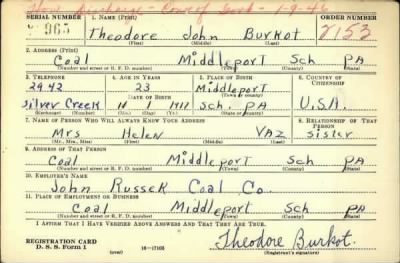 Hon Discharge - Conv of Govt - 1-9-46
SERIAL NUMBER 1. NAME (Print) ORDER NUMBER
965 Theodore John Burkot 2153
(First) (Middle) (Last)
2. ADDRESS (Print)
Coal Middleport Sch PA
(Number and street or R. F. D. number) (Town) (County) (State)
3. TELEPHONE 4. AGE IN YEARS 5. PLACE OF BIRTH 6. COUNTRY OF CITIZENSHIP
2942 23 Middleport
DATE OF BIRTH (Town or county)
Silver Creek 10 1 1917 Sch. PA U.S.A.
(Exchange) (Number) (Mo.) (Day) (Yr.) (State or country)
7. NAME OF PERSON WHO WILL ALWAYS KNOW YOUR ADDRESS 8. RELATIONSHIP OF THAT PERSON
Mrs Helen VAZ Sister
(Mr., Mrs., Miss) (First) (Middle) (Last)
9. ADDRESS OF THAT PERSON
Coal Middleport Sch PA
(Number and street or R. F. D. number) (Town) (County) (State)
10. EMPLOYER'S NAME
John Russek Coal Co.
11. PLACE OF EMPLOYMENT OR BUSINESS
Coal Middleport Sch PA
(Number and street or R. F. D. number) (Town) (County) (State)
I AFFIRM THAT I HAVE VERIFIED ABOVE ANSWERS AND THAT THEY ARE TRUE.
REGISTRATION CARD
D. S. S. Form 1 (over) 16-17105 Theodore Burkot.
(Registrant's signature)